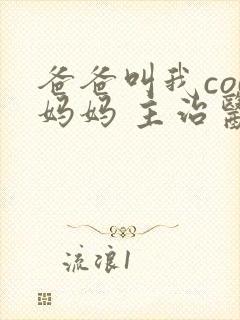 爸爸叫我co
妈妈 主治醫
流浪1